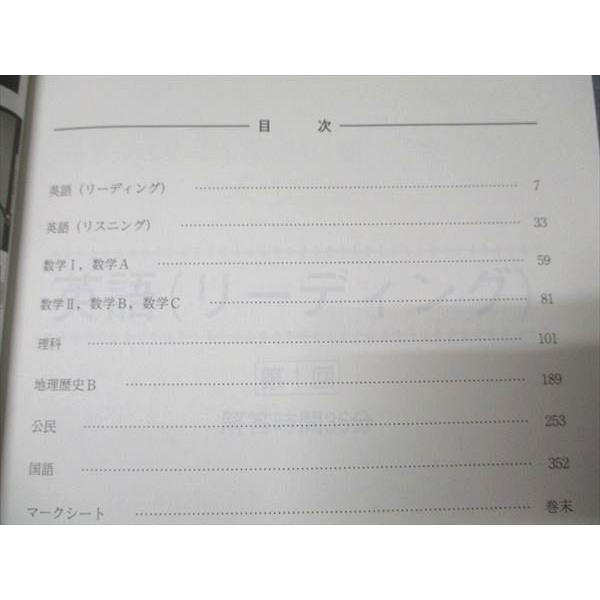 目 次
英語（リーディング） 7
英語（リスニング） 33
数学Ⅰ，数学A 59
数学Ⅱ，数学B，数学C 81
理科 101
地理歴史B 189
公民 253
国語 352
マークシート 巻末
英語（リーディング）
第1回